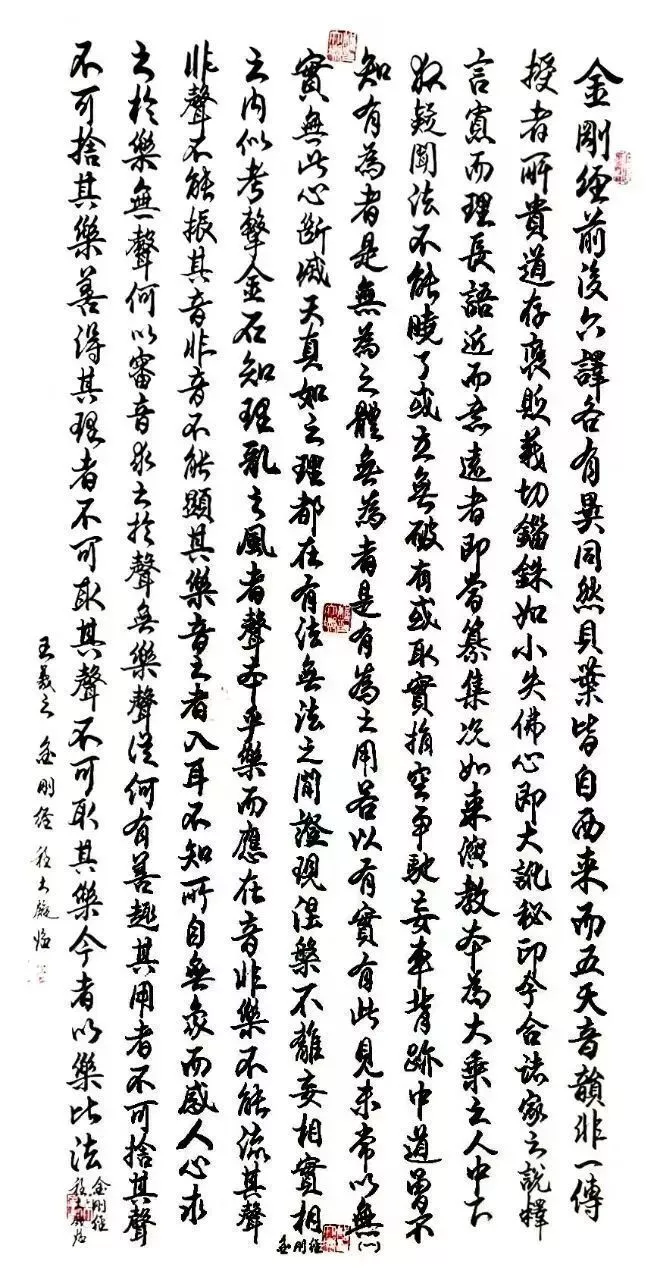 金剛経前後六譯各有異同然貝葉皆自西来而五天音韻非一傳
授者所貴道存褒貶義切錙銖如小失佛心即大訛秘印今合諸家之說擇
言寡而理長語近而意遠者即當纂集况如来演教本為大乗之人中下
狐疑聞法不能曉了或立無破有或取實捐空争馳妄車背跡中道曽不
知有為者是無為之體無為者是有為之用若以有實有此見未常以無
實無此心斷滅天真如之理都在有法無法之間證現涅槃不離妄相實相
之内似考擊金石知理亂之風者聲本乎樂而應在音非樂不能流其聲
非聲不能振其音非音不能顯其樂音之者入耳不知所自無象而感人心求
之於樂無聲何以審音求之於聲無樂聲從何有善趣其用者不可捨其聲
不可捨其樂善得其理者不可取其聲不可取其樂今者以樂比法
王羲之 金剛経 程大 臨
金剛経
金剛経(一)